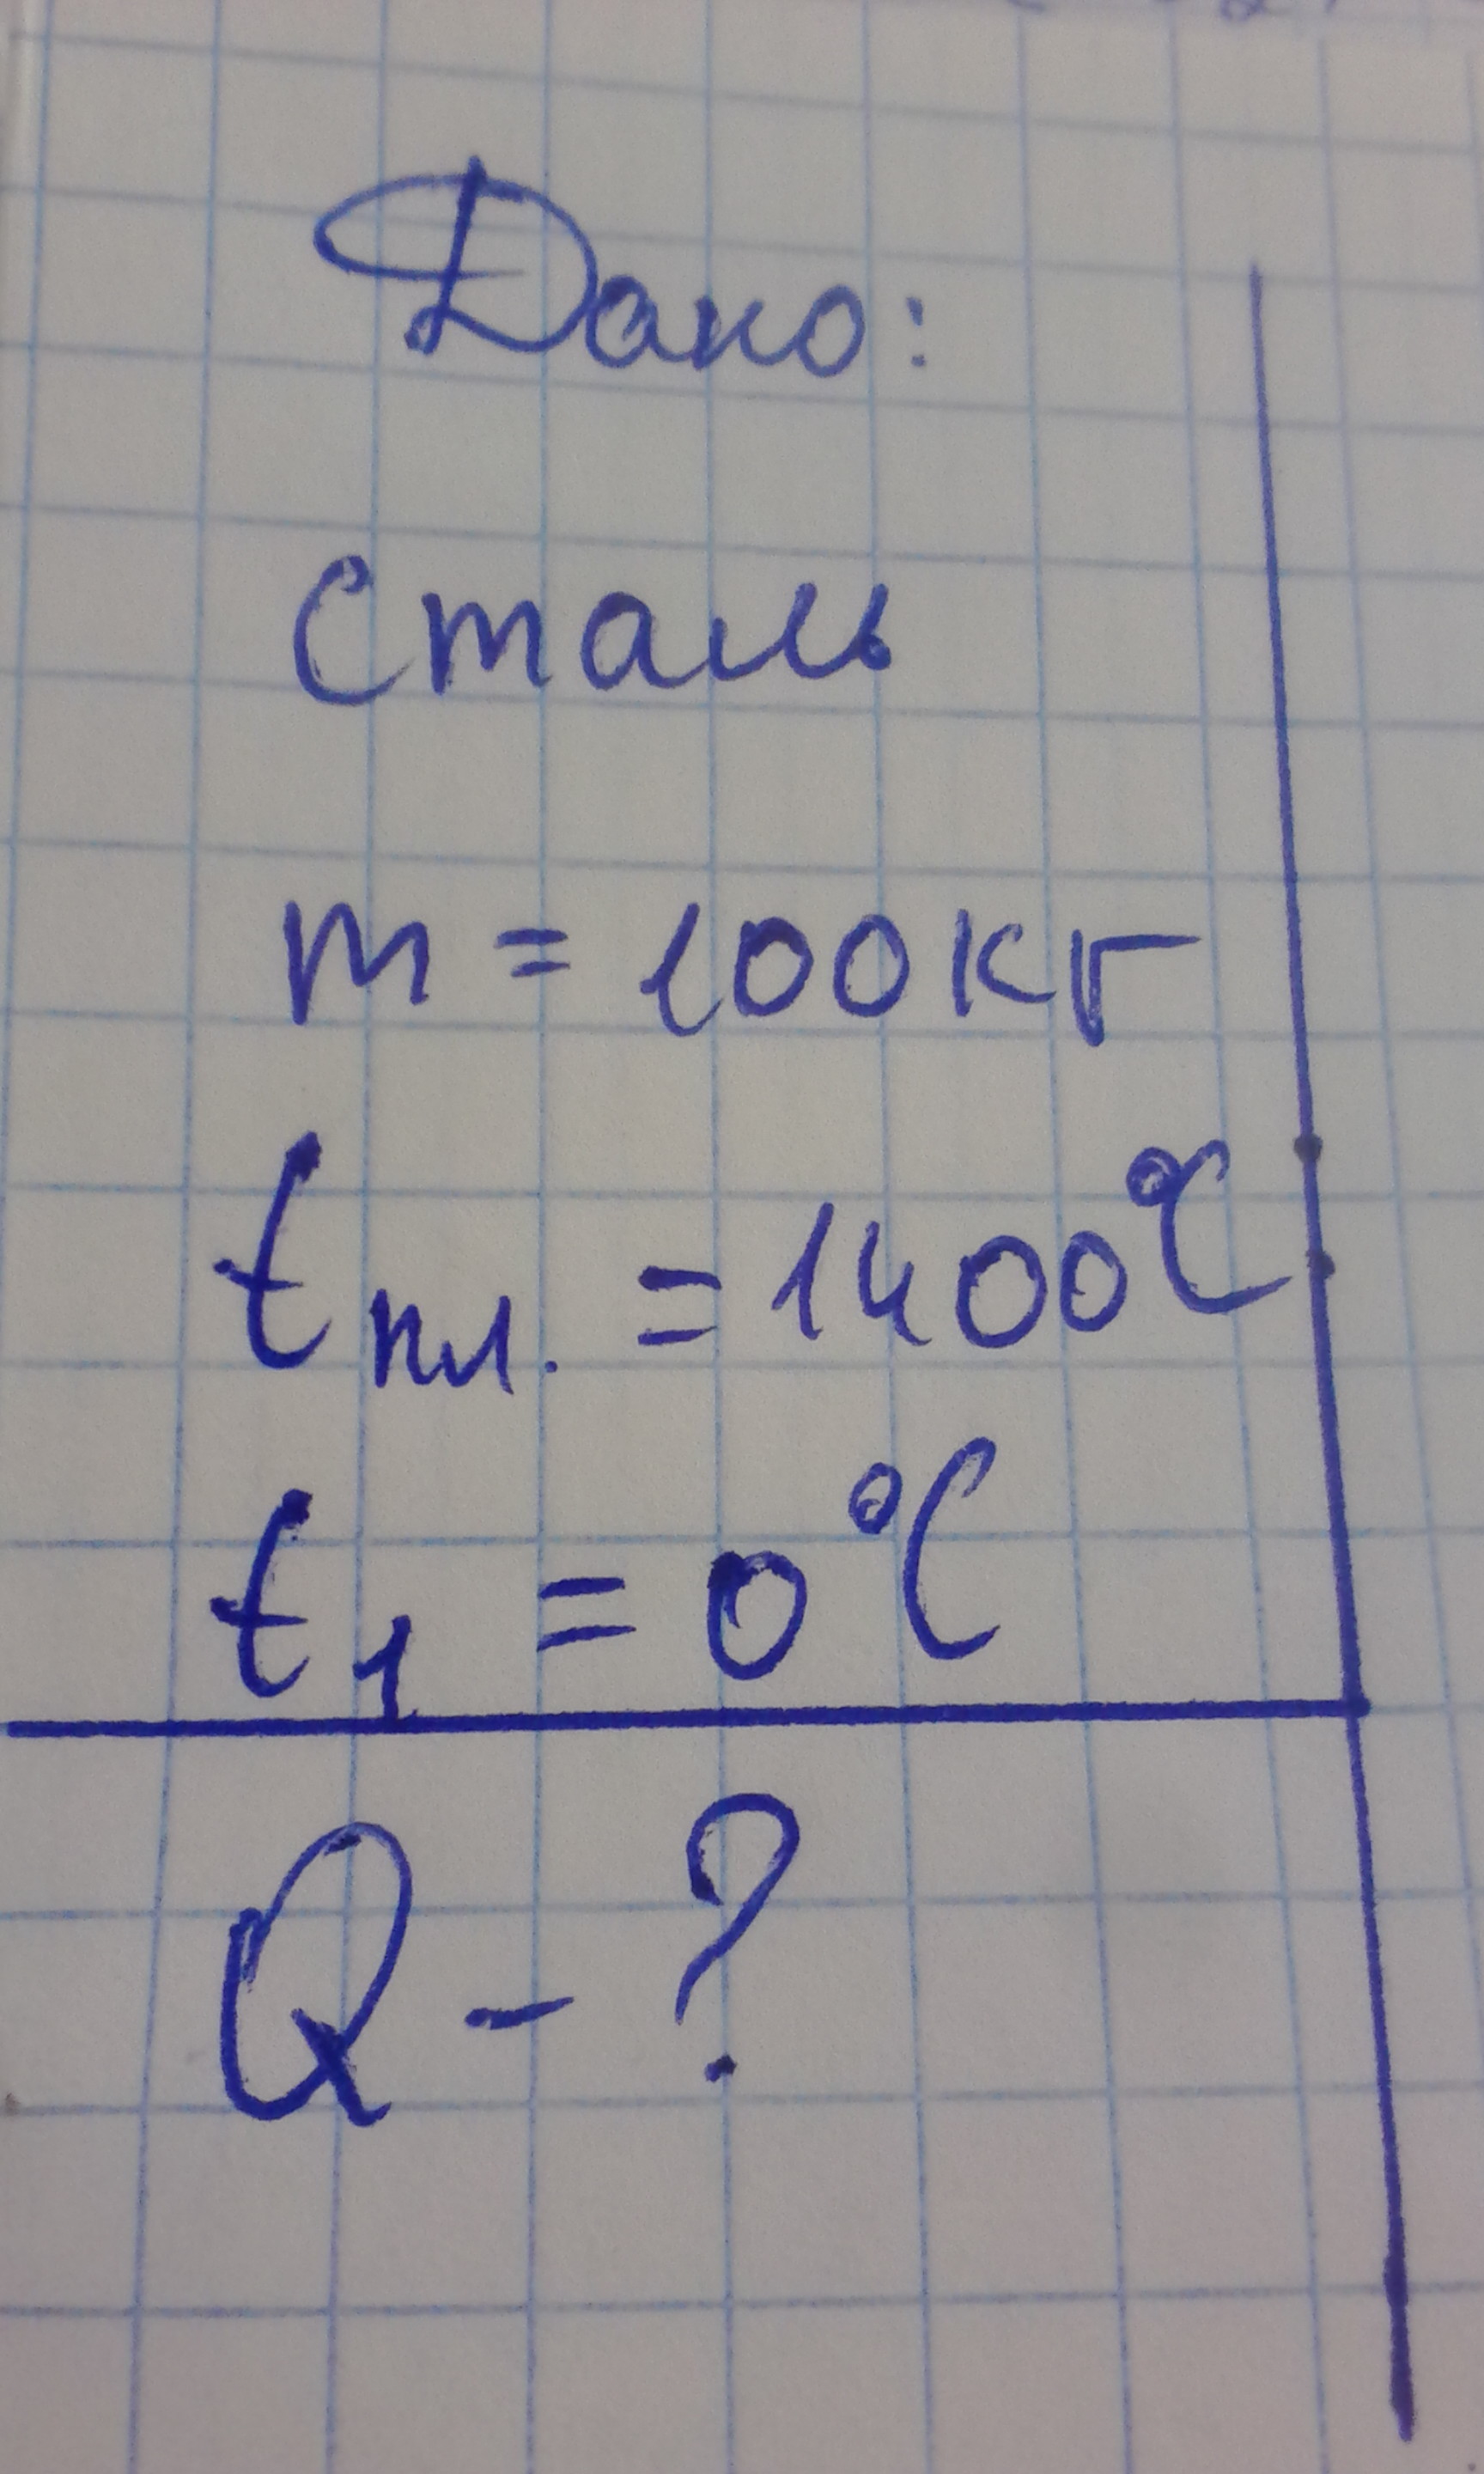 Дано:
сталь
m = 100кг
tпл. = 1400°C
t1 = 0°C
Q - ?